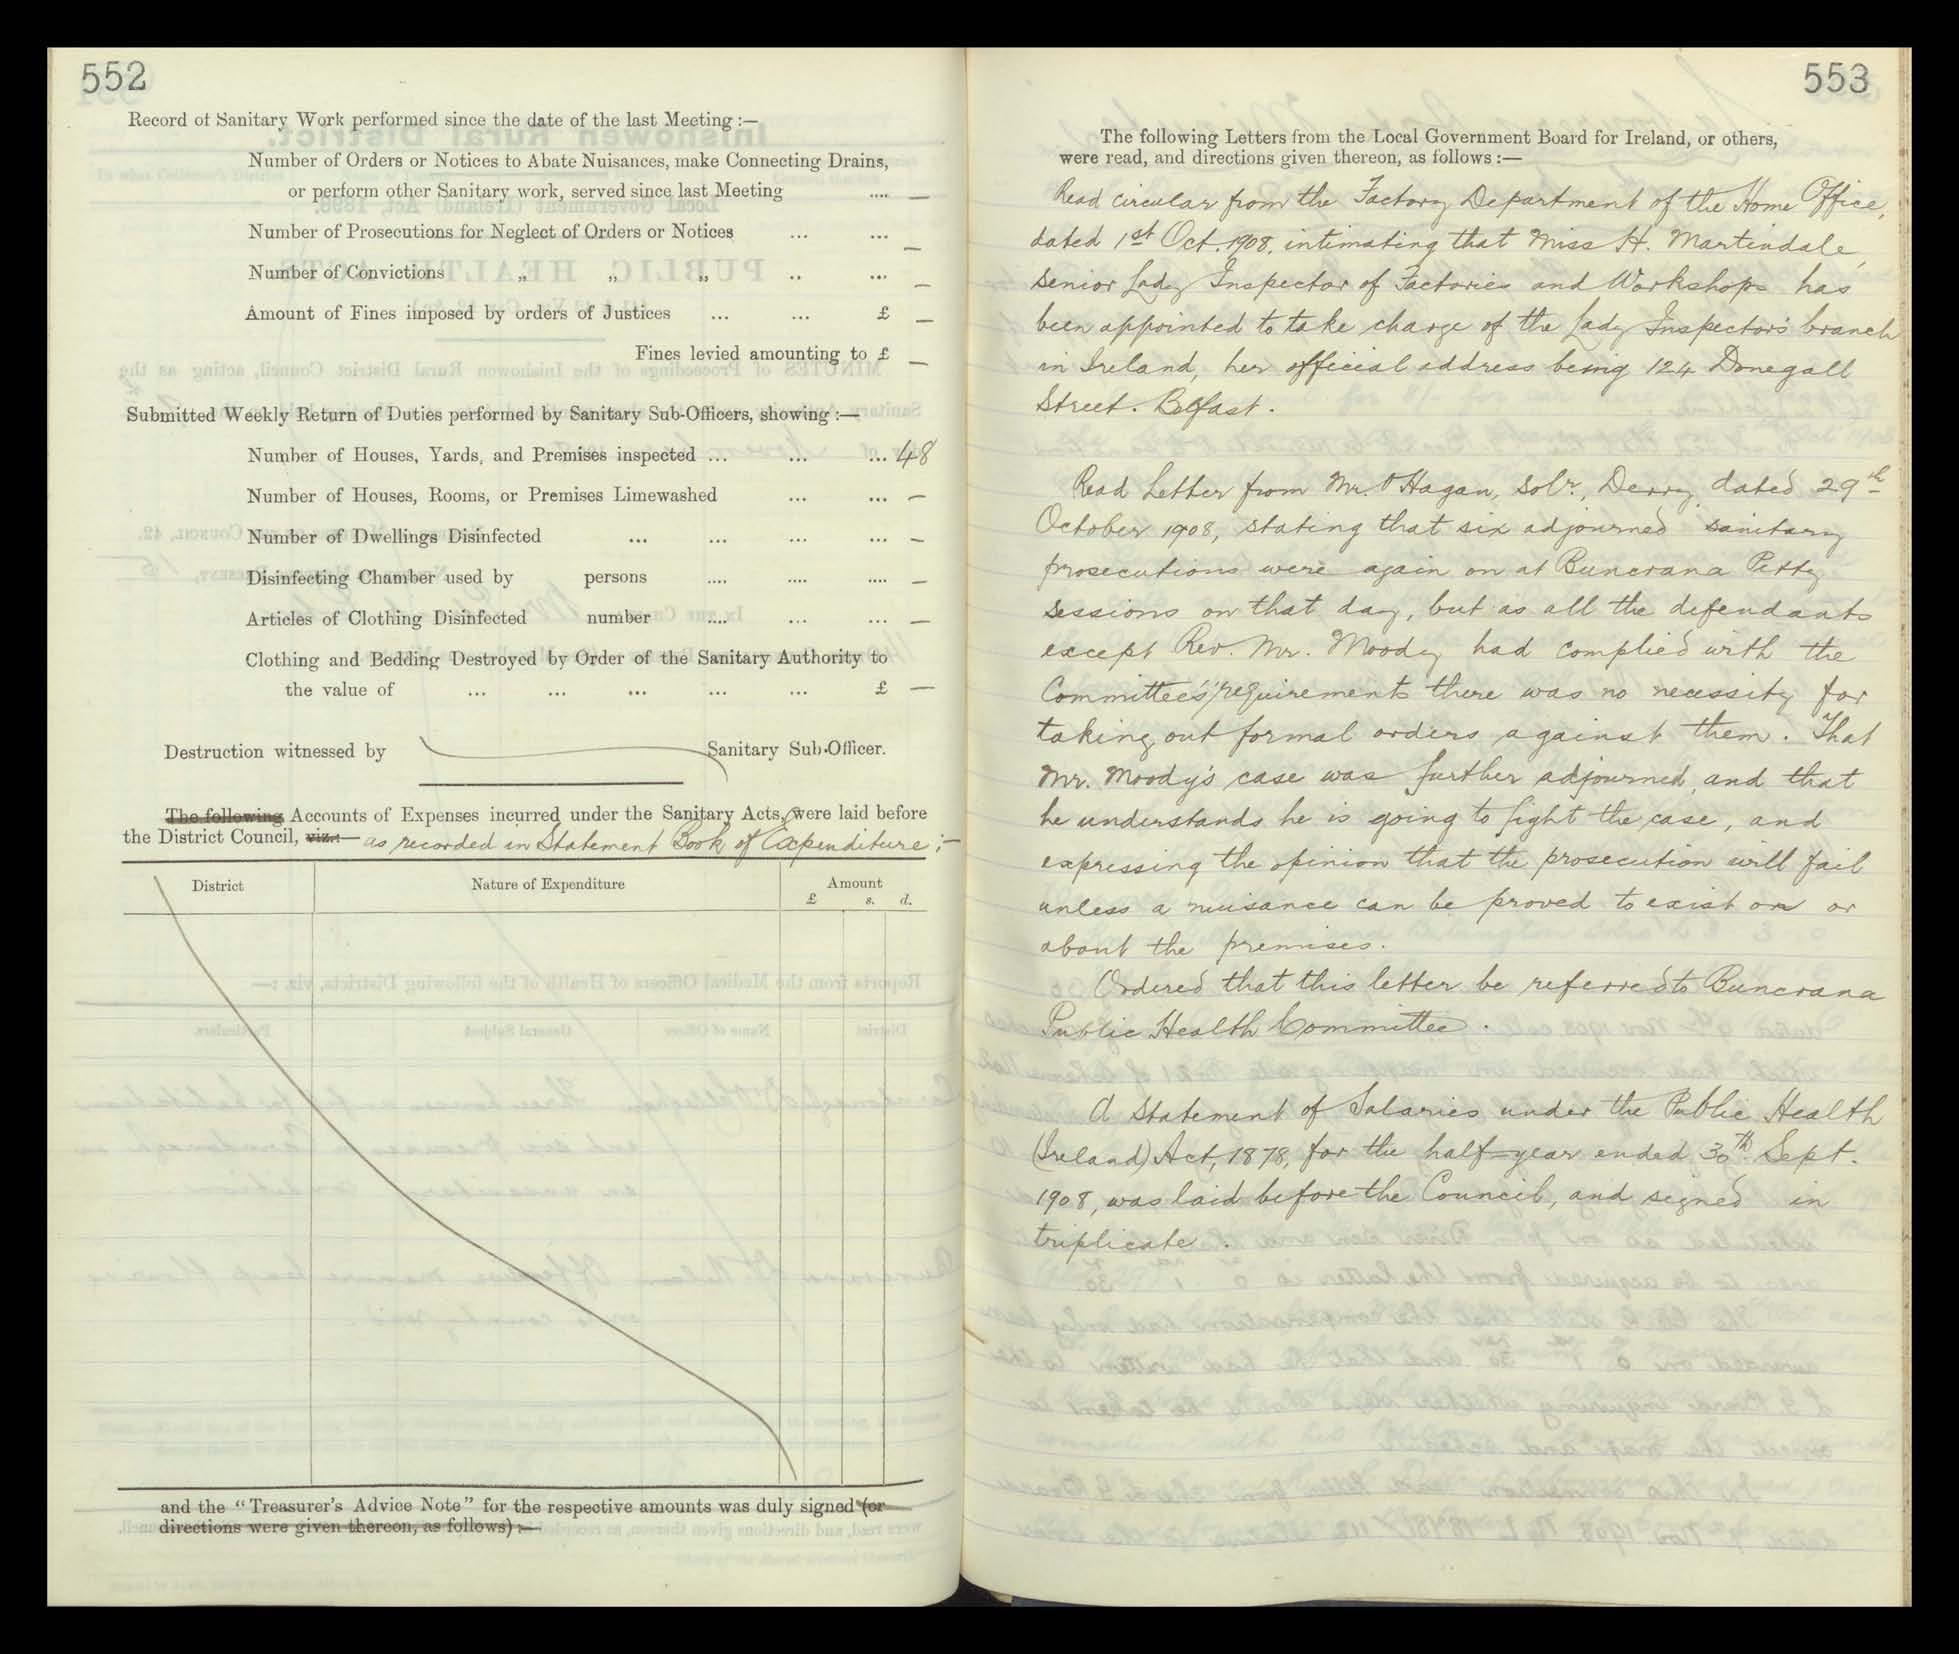 552
Record of Sanitary Work performed since the date of the last Meeting :—
Number of Orders or Notices to Abate Nuisances, make Connecting Drains,
or perform other Sanitary work, served since last Meeting .... —
Number of Prosecutions for Neglect of Orders or Notices ... ... —
Number of Convictions „ „ „ .. ... —
Amount of Fines imposed by orders of Justices ... ... £ —
Fines levied amounting to £ —
Submitted Weekly Return of Duties performed by Sanitary Sub-Officers, showing :—
Number of Houses, Yards, and Premises inspected ... ... ... 48
Number of Houses, Rooms, or Premises Limewashed ... ... —
Number of Dwellings Disinfected ... ... ... ... —
Disinfecting Chamber used by persons .... .... .... —
Articles of Clothing Disinfected number .... ... ... —
Clothing and Bedding Destroyed by Order of the Sanitary Authority to
the value of ... ... ... ... ... £ —
Destruction witnessed by Sanitary Sub-Officer.
The following Accounts of Expenses incurred under the Sanitary Acts, were laid before
the District Council, viz.:— as recorded in Statement Book of Expenditure :—
District Nature of Expenditure Amount
£ s. d.
and the "Treasurer's Advice Note" for the respective amounts was duly signed (or
directions were given thereon, as follows) :—
553
The following Letters from the Local Government Board for Ireland, or others,
were read, and directions given thereon, as follows :—
Read circular from the Factory Department of the Home Office,
dated 1st Oct. 1908, intimating that Miss H. Martindale,
Senior Lady Inspector of Factories and Workshops has
been appointed to take charge of the Lady Inspectors' branch
in Ireland, her official address being 124 Donegall
Street. Belfast.
Read Letter from Mr. O'Hagan, Solr., Derry, dated 29th
October 1908, stating that six adjourned sanitary
prosecutions were again on at Buncrana Petty
Sessions on that day, but as all the defendants
except Rev. Mr. Moody had complied with the
Committee's requirements there was no necessity for
taking out formal orders against them. That
Mr. Moody's case was further adjourned, and that
he understands he is going to fight the case, and
expressing the opinion that the prosecution will fail
unless a nuisance can be proved to exist on or
about the premises.
Ordered that this letter be referred to Buncrana
Public Health Committee.
A Statement of Salaries under the Public Health
(Ireland) Act, 1878, for the half-year ended 30th Sept.
1908, was laid before the Council, and signed in
triplicate.